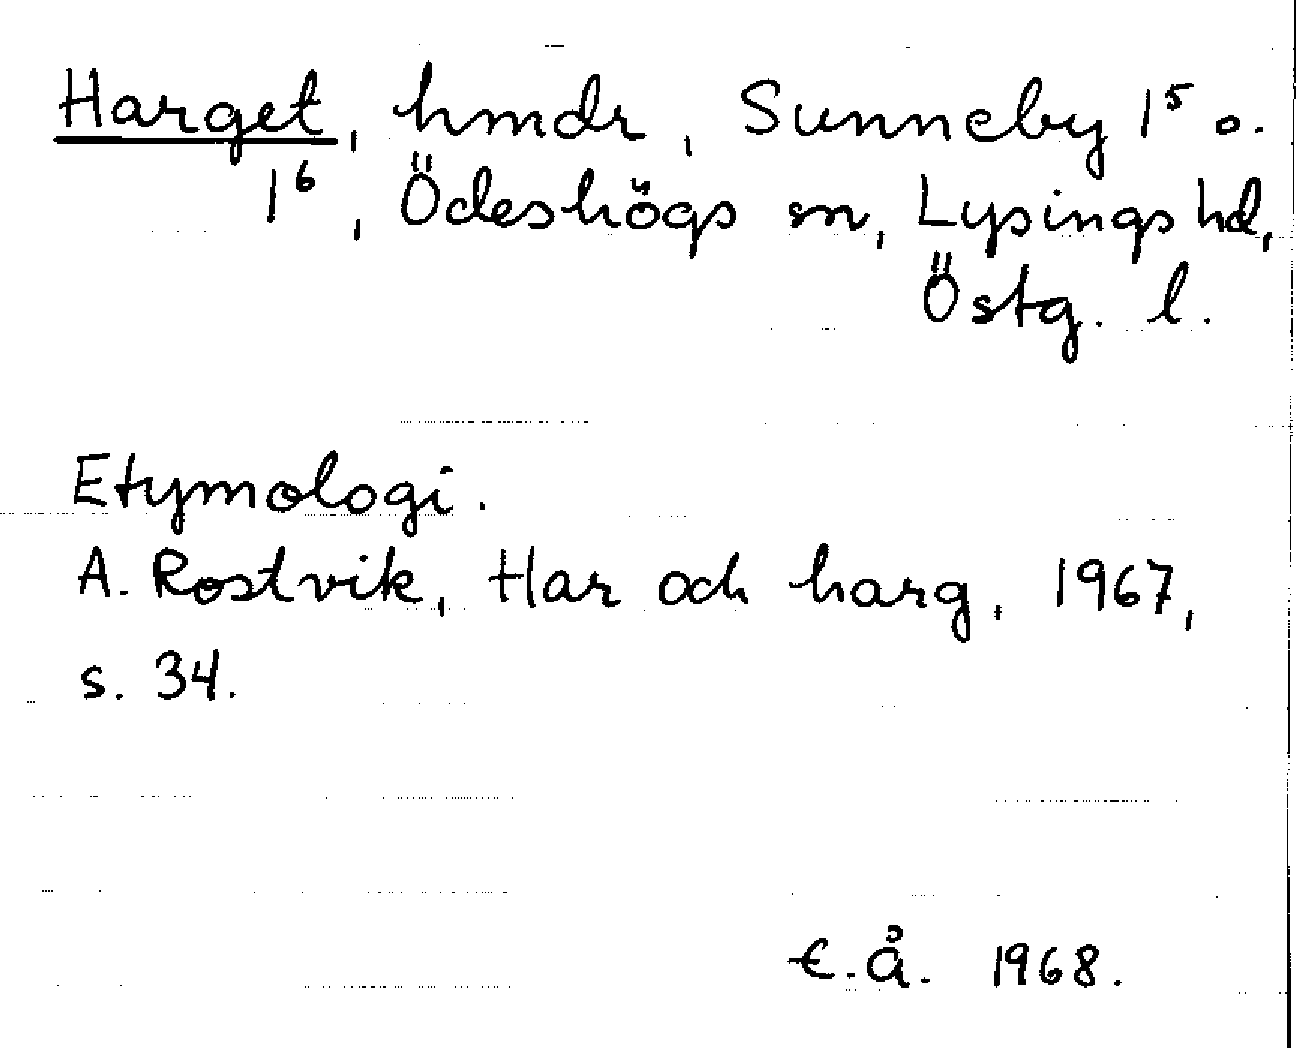 Harget, hmdr, Sunneby 1⁵ o.
1⁶, Ödeshögs sn, Lysings hd,
Östg. l.
Etymologi.
A. Rostvik, Har och harg, 1967,
s. 34.
E.Å. 1968.